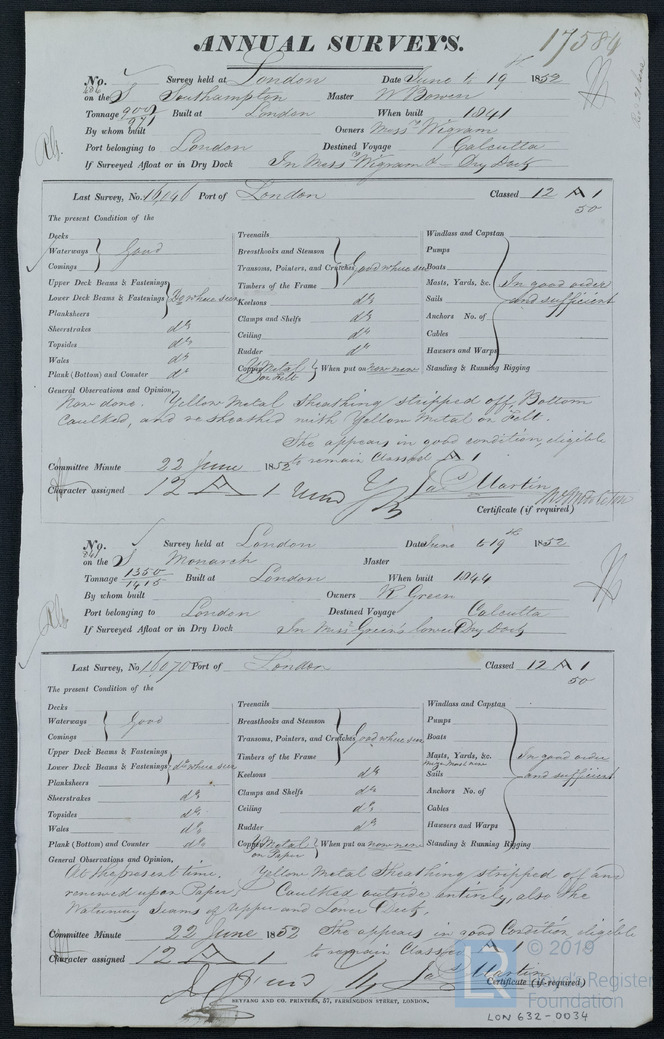 ANNUAL SURVEYS.
17584
No. 486 Survey held at London Date June 6 19th 1852
on the S Southampton Master W Bowen
Tonnage 900/971 Built at London When built 1841
By whom built Owners Messrs Wigram
Port belonging to London Destined Voyage Calcutta
If Surveyed Afloat or in Dry Dock In Messrs Wigram's Dry Dock
Last Survey, No. 16046 Port of London Classed 12 A 1
50
The present Condition of the
Decks
Waterways Good
Comings
Upper Deck Beams & Fastenings
Lower Deck Beams & Fastenings Do where seen
Planksheers
Sheerstrakes do
Topsides do
Wales do
Plank (Bottom) and Counter do
Treenails
Breasthooks and Stemson
Transoms, Pointers, and Crutches Good where seen
Timbers of the Frame
Keelsons do
Clamps and Shelfs do
Ceiling do
Rudder do
Copper Y Metal on Felt When put on now new
Windlass and Capstan
Pumps
Boats
Masts, Yards, &c. In good order
Sails and sufficient
Anchors No. of
Cables
Hawsers and Warps
Standing & Running Rigging
General Observations and Opinion,
Now done. Yellow Metal Sheathing stripped off, Bottom
Caulked, and resheathed with Yellow Metal on Felt.
She appears in good condition, eligible
to remain Classed A 1
Committee Minute 22 June 1852
Character assigned 12 A 1
Jas Martin
Certificate (if required)
No. 841 Survey held at London Date June 6 19th 1852
on the S Monarch Master
Tonnage 1350/1415 Built at London When built 1844
By whom built Owners R Green
Port belonging to London Destined Voyage Calcutta
If Surveyed Afloat or in Dry Dock In Messrs Green's lower Dry Dock
Last Survey, No. 16070 Port of London Classed 12 A 1
50
The present Condition of the
Decks
Waterways Good
Comings
Upper Deck Beams & Fastenings
Lower Deck Beams & Fastenings do where seen
Planksheers
Sheerstrakes do
Topsides do
Wales do
Plank (Bottom) and Counter do
Treenails
Breasthooks and Stemson
Transoms, Pointers, and Crutches Good where seen
Timbers of the Frame
Keelsons do
Clamps and Shelfs do
Ceiling do
Rudder do
Copper Y Metal on Paper When put on now new
Windlass and Capstan
Pumps
Boats
Masts, Yards, &c. In good order
Mizen Mast new
Sails and sufficient
Anchors No. of
Cables
Hawsers and Warps
Standing & Running Rigging
General Observations and Opinion,
At the present time. Yellow Metal Sheathing stripped off and
renewed upon Paper. Caulked outside entirely, also the
Waterway Seams of Upper and Lower Deck,
She appears in good Condition eligible
to remain Classed A 1
Committee Minute 22 June 1852
Character assigned 12 A 1
Jas Martin
Certificate (if required)
SEYFANG AND CO. PRINTERS, 57, FARRINGDON STREET, LONDON.
© 2019
LR
Lloyd's Register
Foundation
LON 632-0034